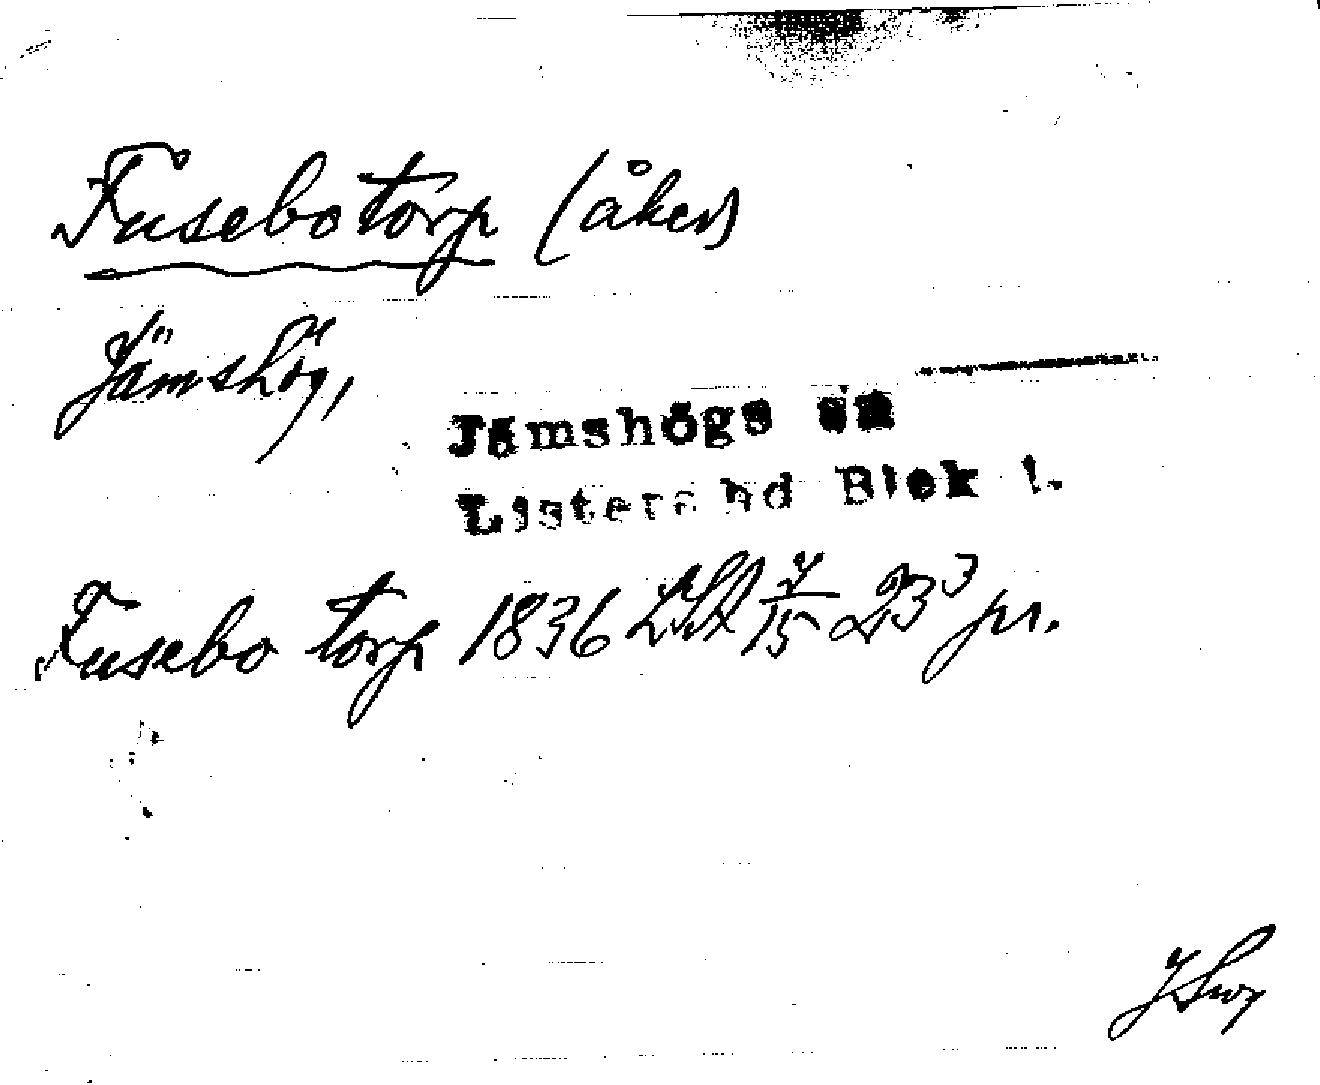 Fusebotorp (åker)
Jämshög,
Jämshögs sn
Listers hd Blek l.
Fusebo torp 1836 LSA 15 23 pr.